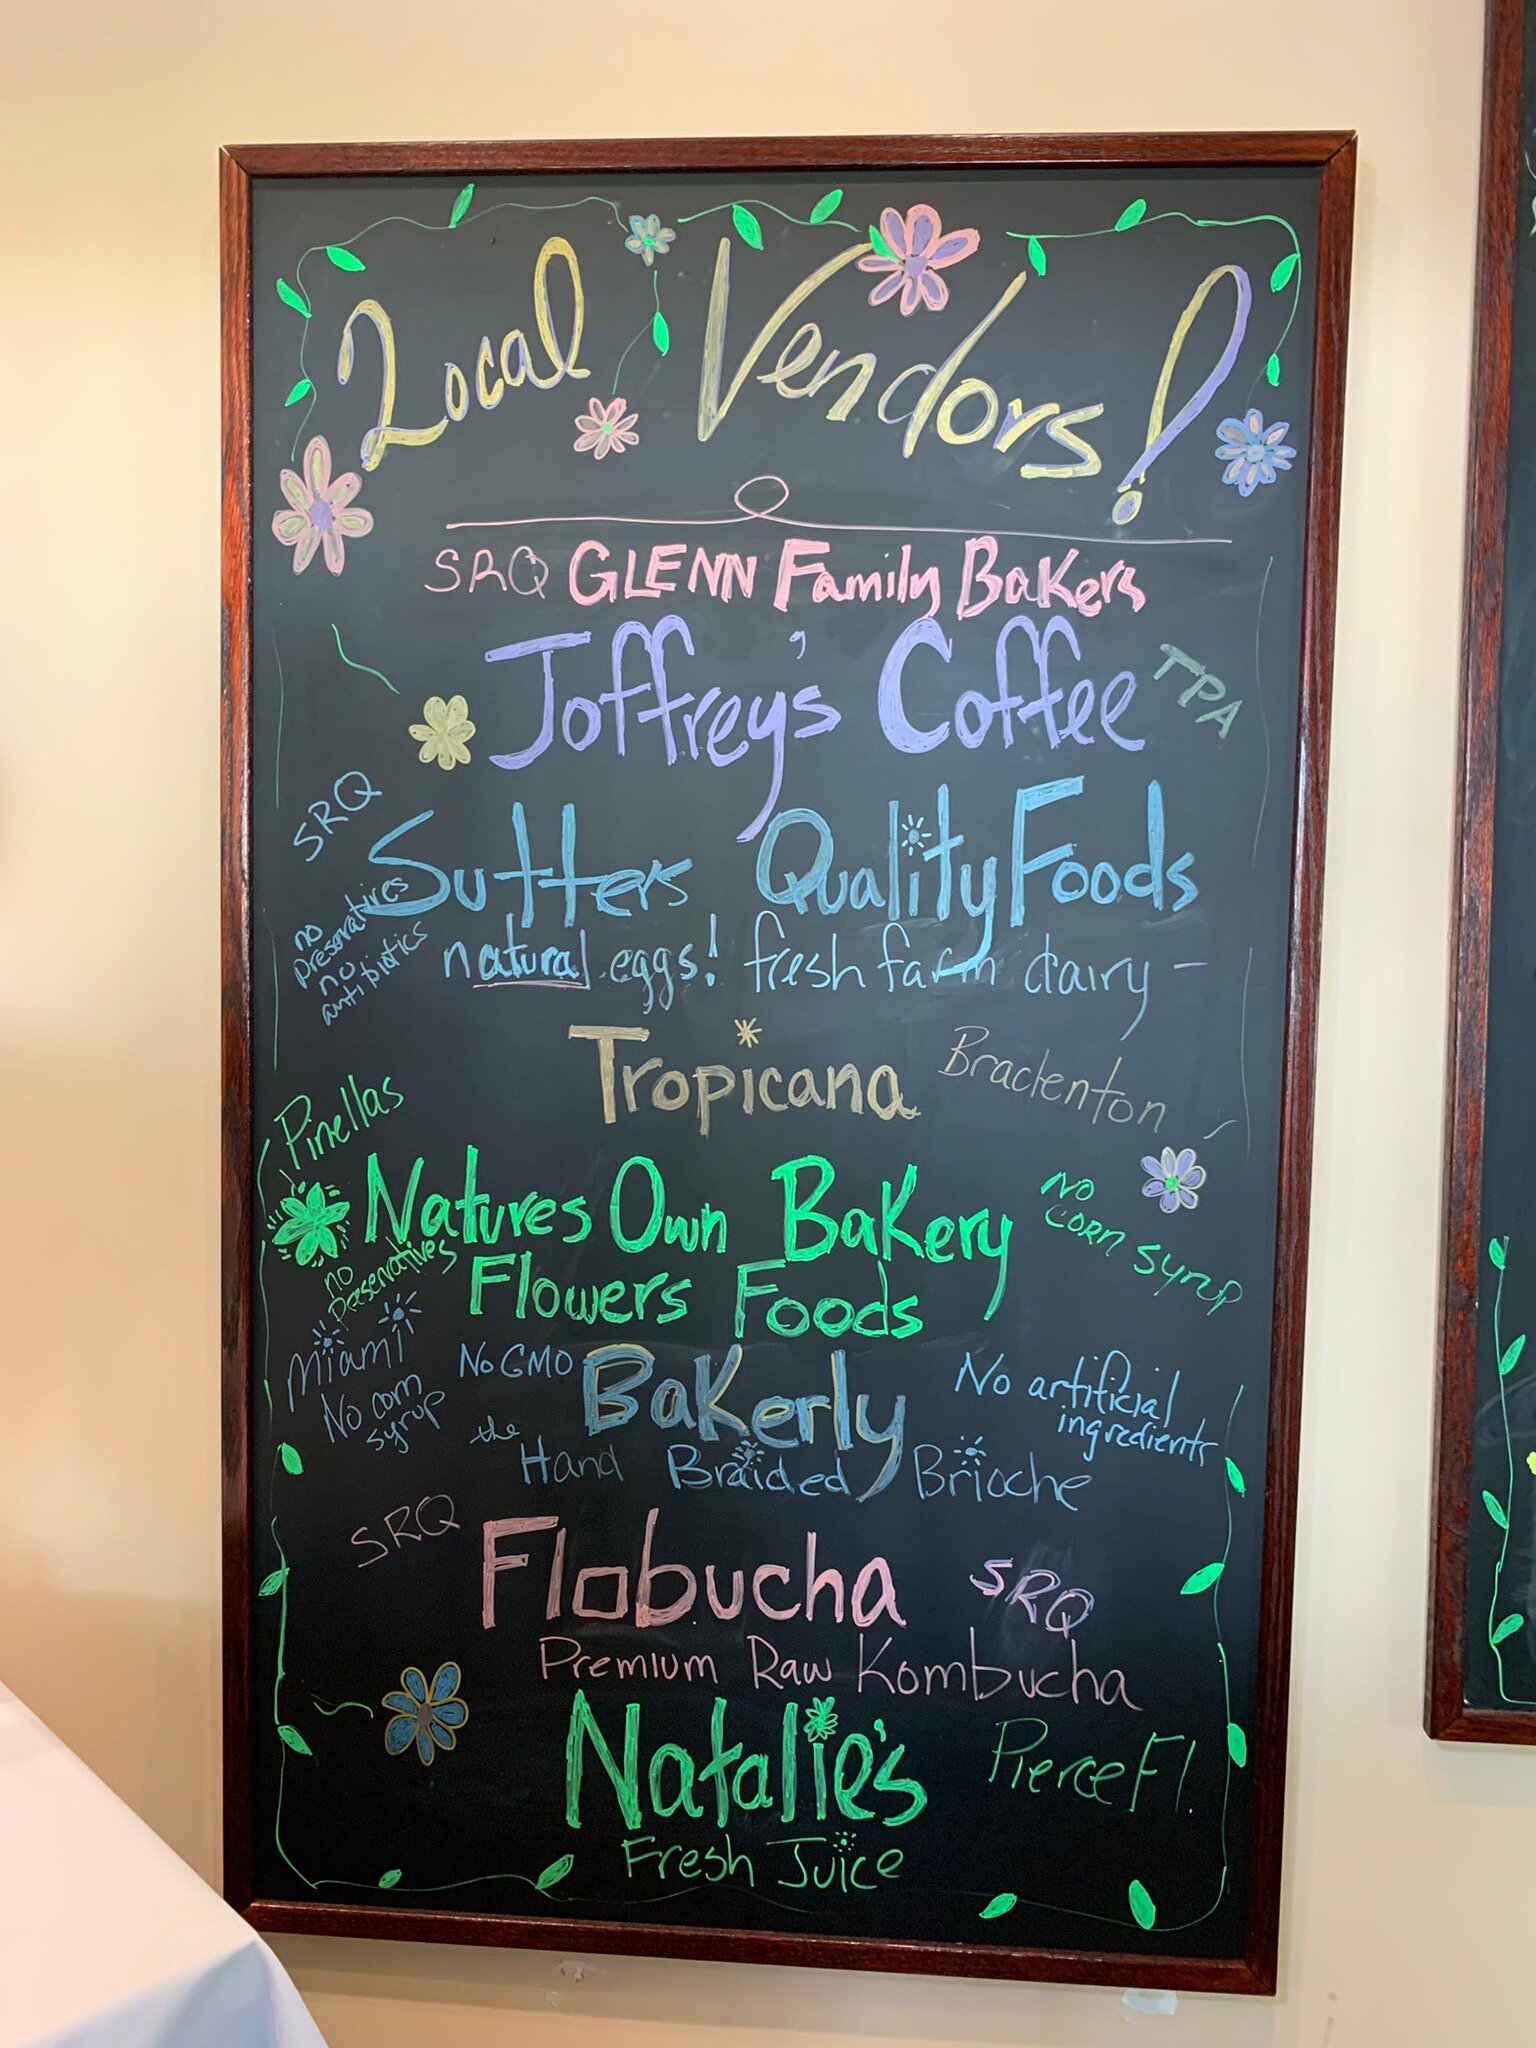 Local Vendors!
SRQ GLENN Family Bakers
Joffrey's Coffee TPA
SRQ
Sutters Quality Foods
no
preservatires
no
antibiotics
natural eggs! fresh farm dairy -
Tropicana Bradenton
Pinellas
Natures Own Bakery
no
Preservatives
No
Corn Syrup
Flowers Foods
Miami
No corn
syrup
No GMO
Bakerly
No artificial
ingredients
the
Hand Braided Brioche
SRQ Flobucha SRQ
Premium Raw Kombucha
Natalie's Pierce Fl.
Fresh Juice